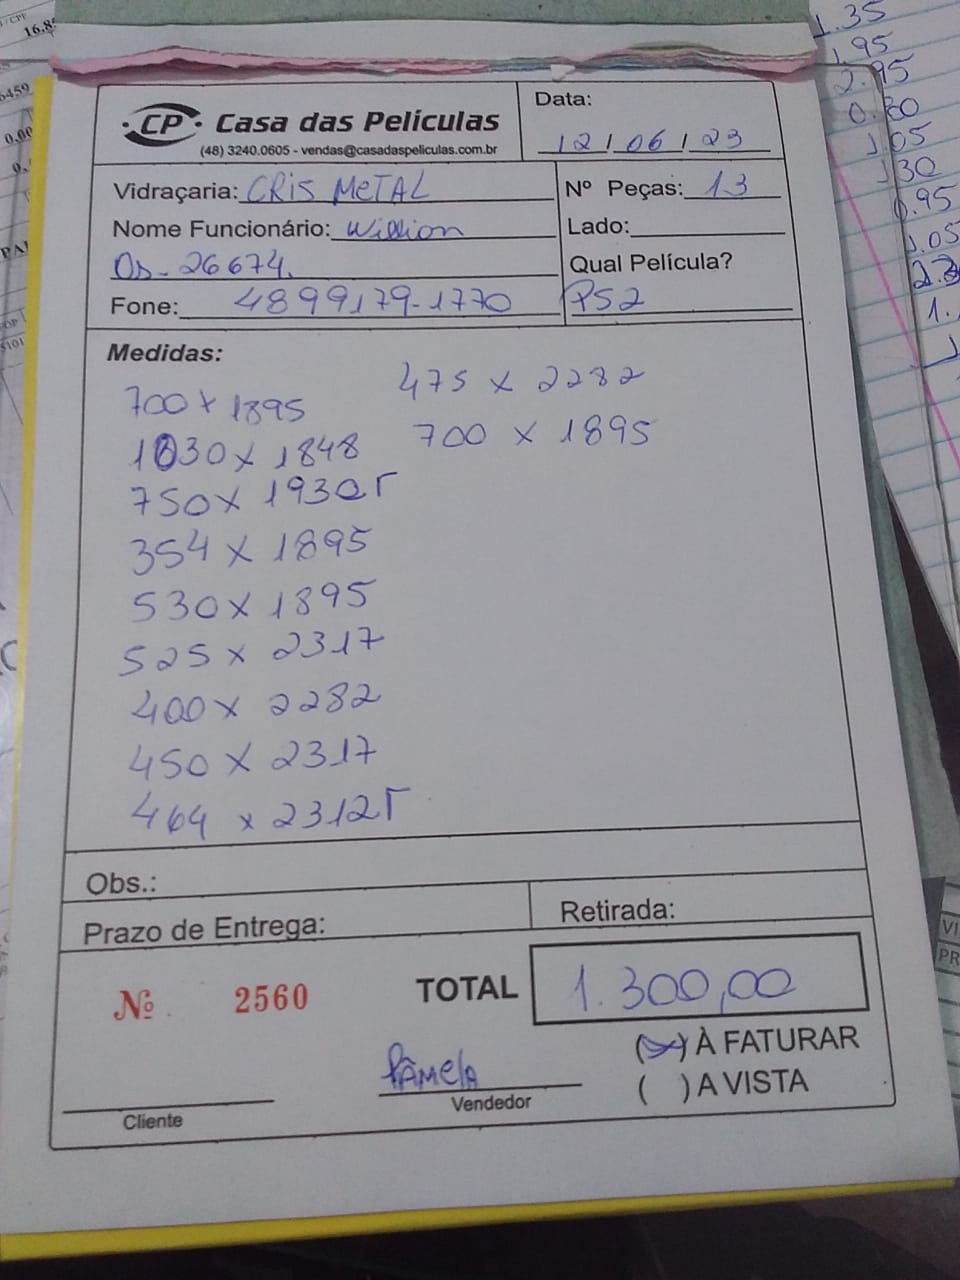 CP Casa das Películas
(48) 3240.0605 - vendas@casadaspeliculas.com.br
Data:
12/06/23
Vidraçaria: CRIS METAL
Nº Peças: 13
Nome Funcionário: Willion
Lado:
Os- 26674.
Qual Película?
Fone: 4899179-1770
PS2
Medidas:
700 x 1895
1030 x 1848
750 x 1930Γ
354 x 1895
530 x 1895
525 x 2317
400 x 2282
450 x 2317
464 x 2312Γ
475 x 2282
700 x 1895
Obs.:
Prazo de Entrega:
Retirada:
Nº 2560
TOTAL 1.300,00
(x) À FATURAR
( ) A VISTA
Pâmela
Cliente
Vendedor
1.35
1.95
2.95
0.80
1.05
1.30
0.95
1.05
16.8
6459
0.00